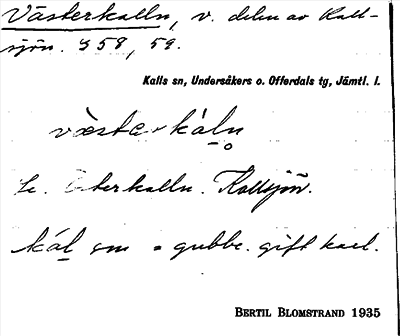 Västerkalln, v. delen av Kall-
sjön. 958, 59.
Kalls sn, Undersåkers o. Offerdals tg, Jämtl. l.
væster kåln
Se Österkalln. Kallsjön.
kål sm = gubbe. gift karl.
BERTIL BLOMSTRAND 1935